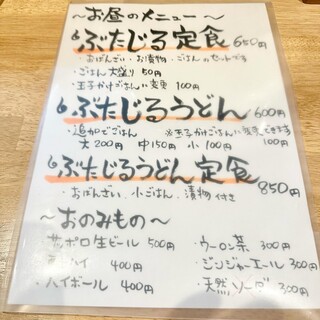 ～お昼のメニュー～
ぶたじる定食 650円
・おばんざい・お漬物・ごはんのセットです
・ごはん大盛り 50円
・玉子かけごはんに変更 100円
ぶたじるうどん 600円
・追加でごはん ※玉子かけごはんに変更できます
大200円 中150円 小100円 100円
ぶたじるうどん定食 850円
・おばんざい、小ごはん、漬物付き
～おのみもの～
サッポロ生ビール 500円 ・ウーロン茶 300円
ハイ 400円 ・ジンジャーエール 300円
ハイボール 400円 ・天然ソーダ 300円